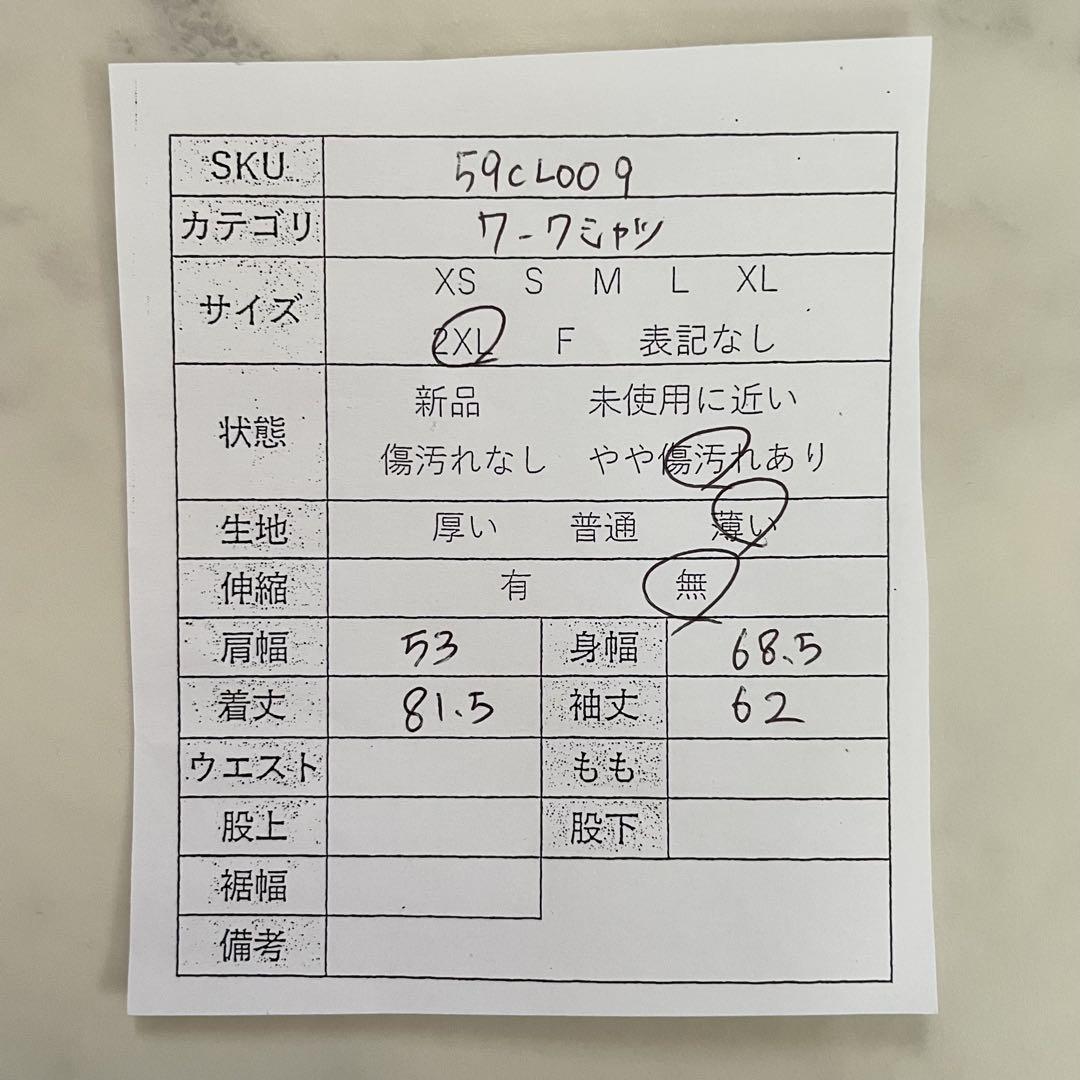 SKU 59CL009
カテゴリ ワークシャツ
サイズ XS S M L XL
2XL F 表記なし
状態 新品 未使用に近い
傷汚れなし やや傷汚れあり
生地 厚い 普通 薄い
伸縮 有 無
肩幅 53 身幅 68.5
着丈 81.5 袖丈 62
ウエスト もも
股上 股下
裾幅
備考